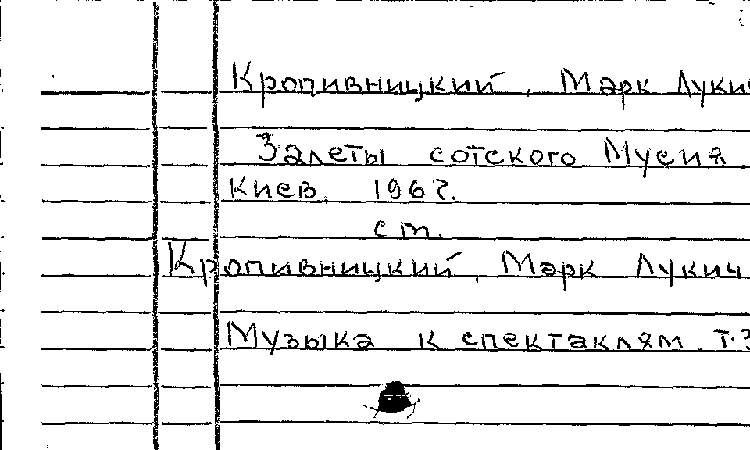 Кропивницкий, Марк Лукич
Залеты сотского Мусия
Киев, 196?.
ст.
Кропивницкий, Марк Лукич
Музыка к спектаклям. т.